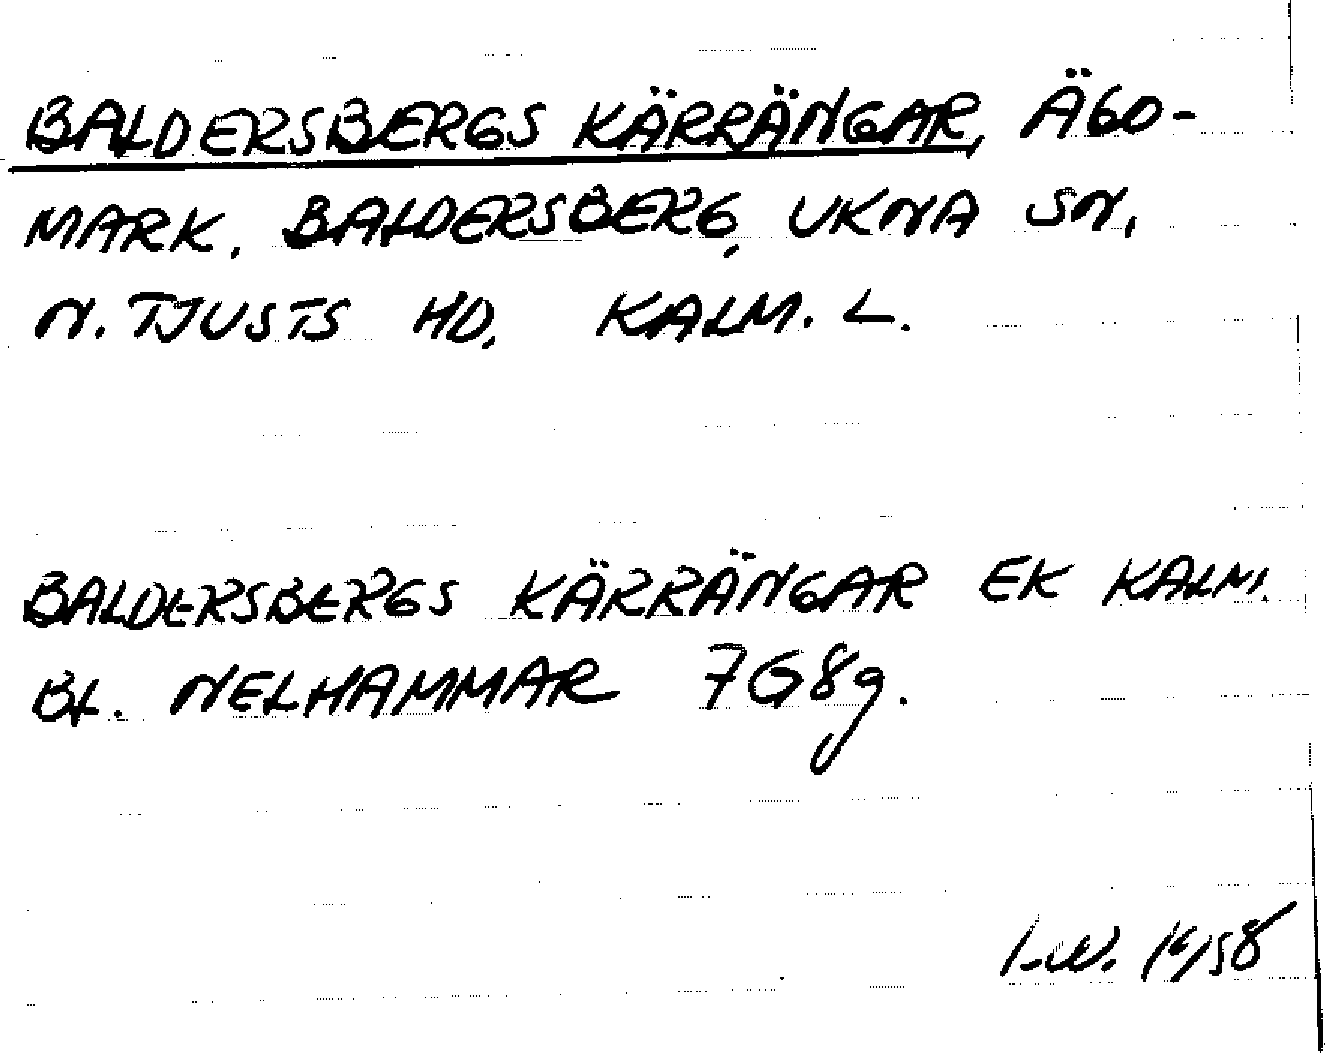 BALDERSBERGS KÄRRÄNGAR, ÄGO-
MARK. BALDERSBERG, UKNA SN.
N. TJUSTS HD. KALM. L.
BALDERSBERGS KÄRRÄNGAR EK KALM.
BL. NELHAMMAR 7G8g.